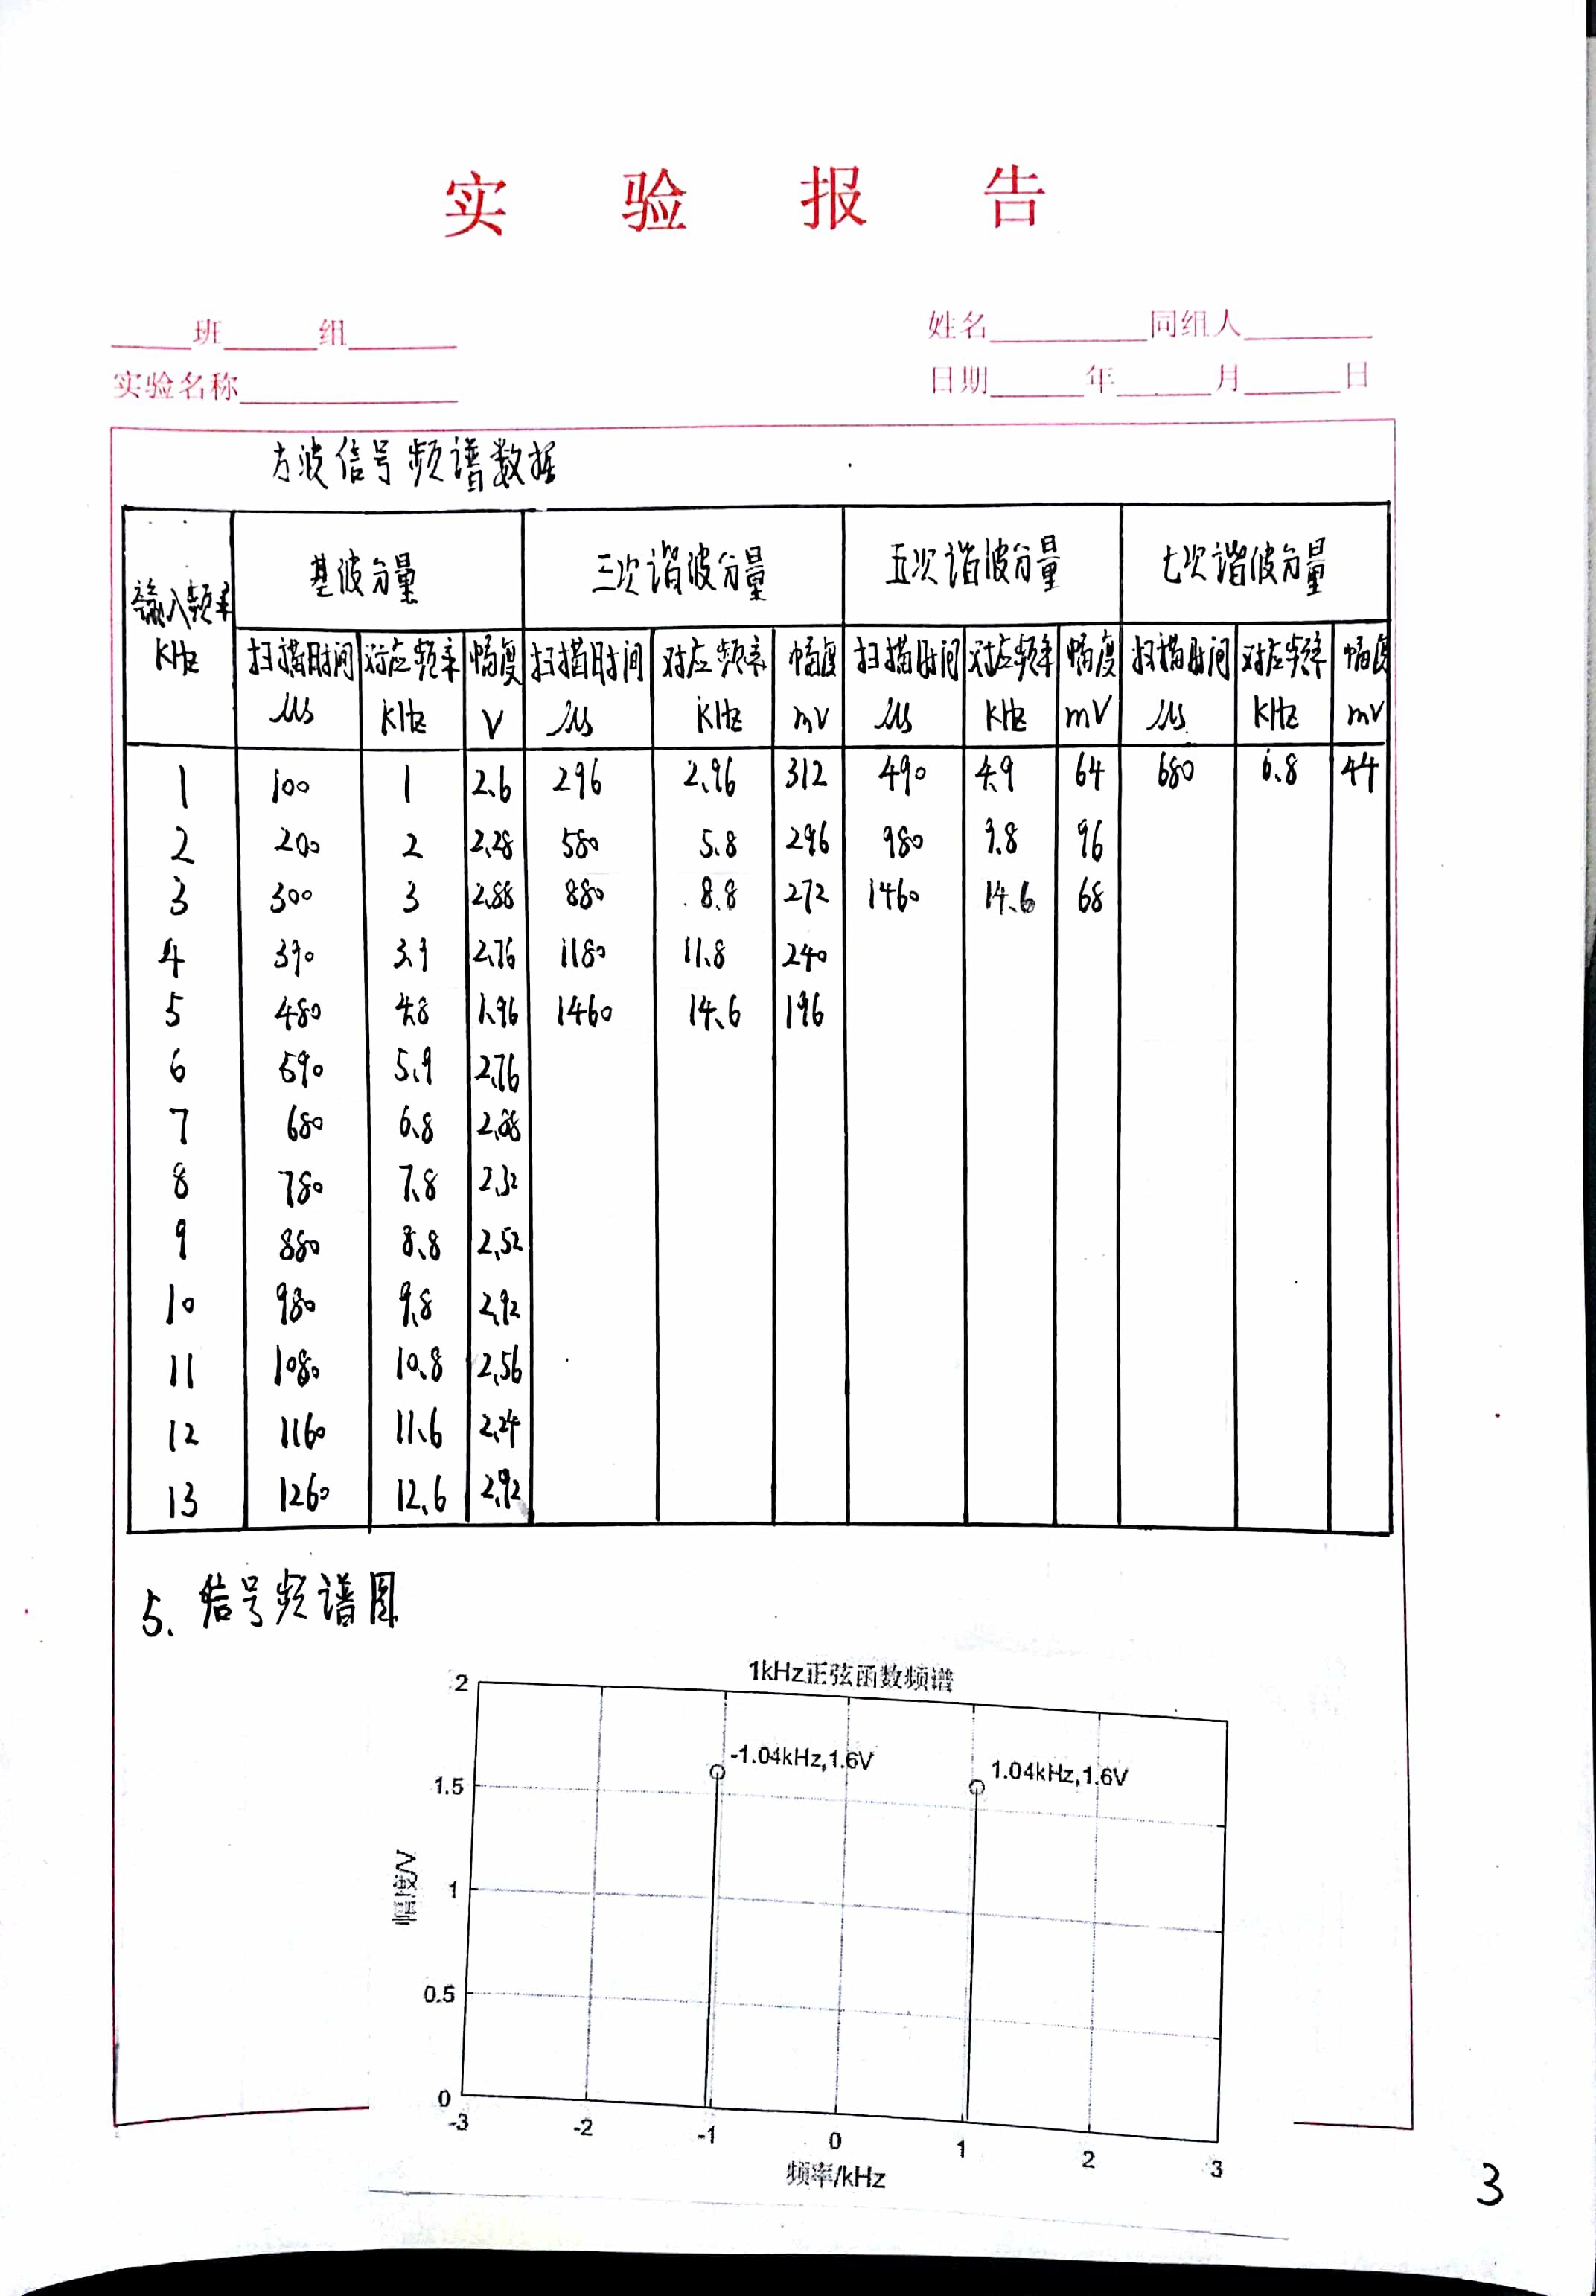 实 验 报 告
班 组 姓名 同组人
实验名称 日期 年 月 日
方波信号频谱数据
输入频率 KHz 基波分量 三次谐波分量 五次谐波分量 七次谐波分量
扫描时间 对应频率 幅度 扫描时间 对应频率 幅度 扫描时间 对应频率 幅度 扫描时间 对应频率 幅度
μs KHz V μs KHz mV μs KHz mV μs KHz mV
1 100 1 2.6 296 2.96 312 490 4.9 64 680 6.8 44
2 200 2 2.28 580 5.8 296 980 9.8 96
3 300 3 2.88 880 8.8 272 1460 14.6 68
4 390 3.9 2.76 1180 11.8 240
5 480 4.8 1.96 1460 14.6 196
6 590 5.9 2.76
7 680 6.8 2.88
8 780 7.8 2.32
9 880 8.8 2.52
10 980 9.8 2.92
11 1080 10.8 2.56
12 1160 11.6 2.24
13 1260 12.6 2.92
5. 信号频谱图
1kHz正弦函数频谱
2
-1.04kHz,1.6V 1.04kHz,1.6V
1.5
幅度/V
1
0.5
0
-3 -2 -1 0 1 2 3
频率/kHz
3